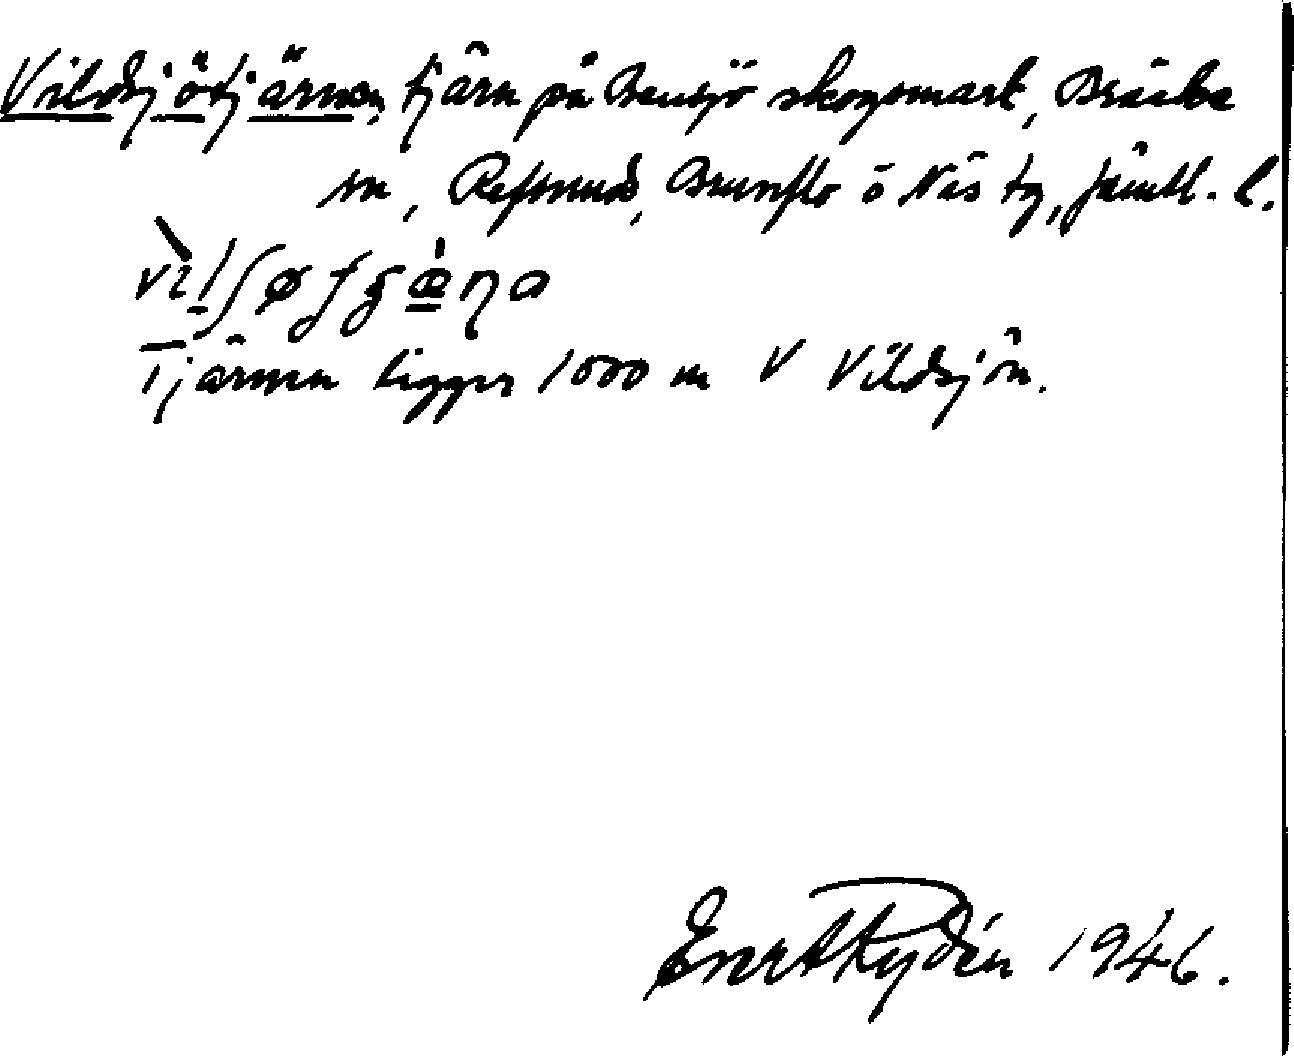 Vildsjötjärnen, tjärn på Bensjö skogsmark, Bräcke
sn, Refsunds, Brunflo o Näs tg, Jämtl. l.
Tjärnen ligger 1000 m V Vildsjön.
Evert Rydén 1946.